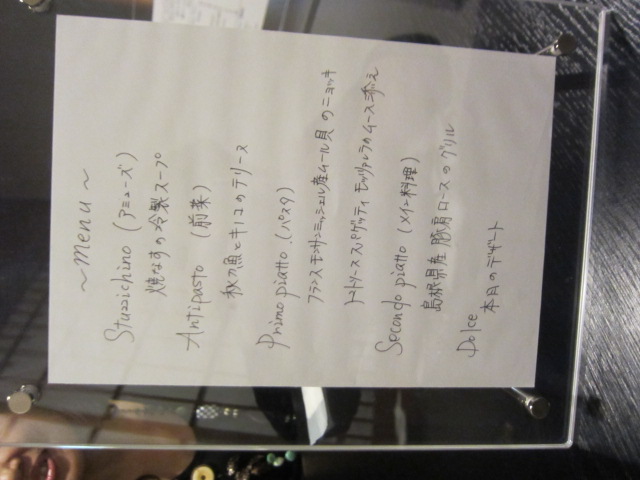 ～Menu～
Stuzzichino (アミューズ)
焼なすの冷製スープ
Antipasto (前菜)
秋刀魚とキノコのテリーヌ
Primo piatto (パスタ)
フランスモンサンミッシェル産ムール貝のニョッキ
トマトソーススパゲッティ モッツァレラのムース添え
Secondo piatto (メイン料理)
島根県産 豚肩ロースのグリル
Dolce
本日のデザート